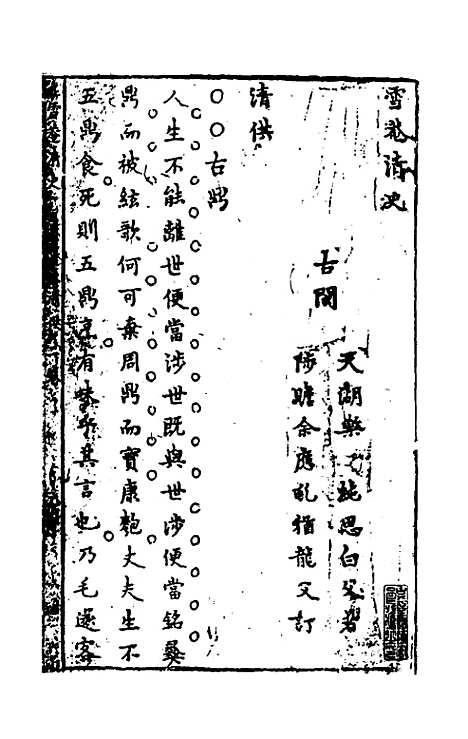 雪菴清史
古閩
天湖樂 純思白父著
陟瞻余應虬猶龍父訂
清供
○○古鼎
人生不能離世便當涉世既與世涉便當銘彝
鼎而被絃歌何可棄周鼎而寶康瓠丈夫生不
五鼎食死則五鼎烹有味乎其言也乃毛遂客